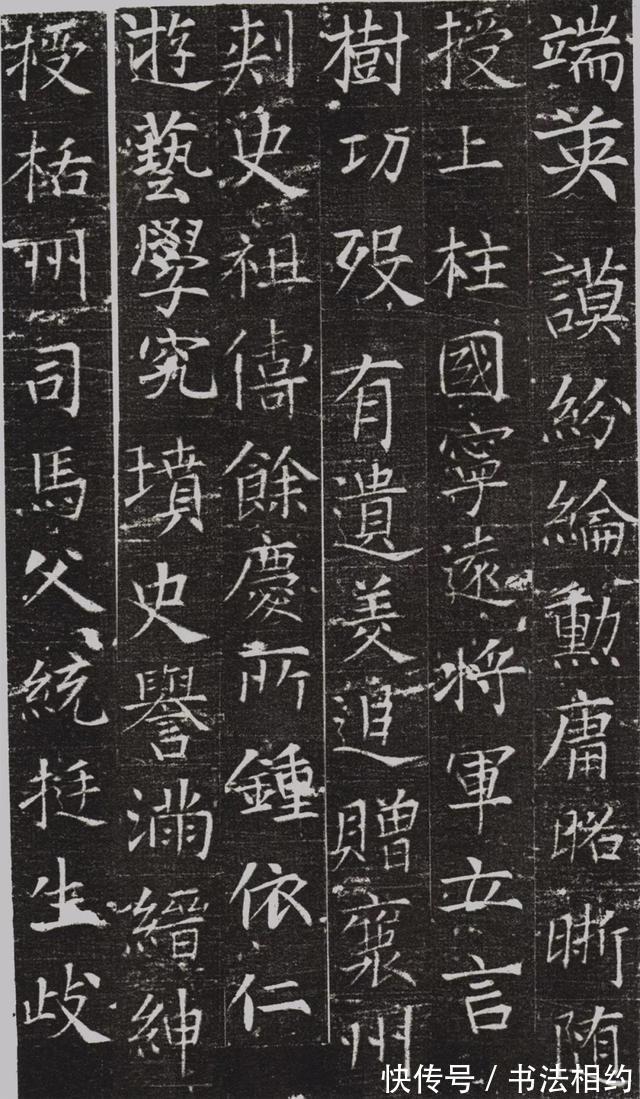 端英謨紛綸勳庸昭晣隋
授上柱國寧遠將軍立言
樹功歿有遺美追贈襄州
刺史祖儔餘慶所鍾依仁
遊藝學究墳史譽滿縉紳
授栝州司馬父統挺生歧
快传号/书法相约